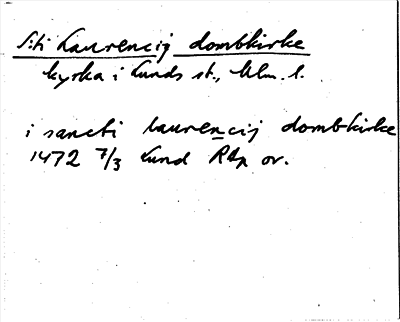 S:ti Laurencij dombkirke
kyrka i Lunds st., Mlm. l.
i sancti laurencij dombkirke
1472 7/3 Lund RAp or.